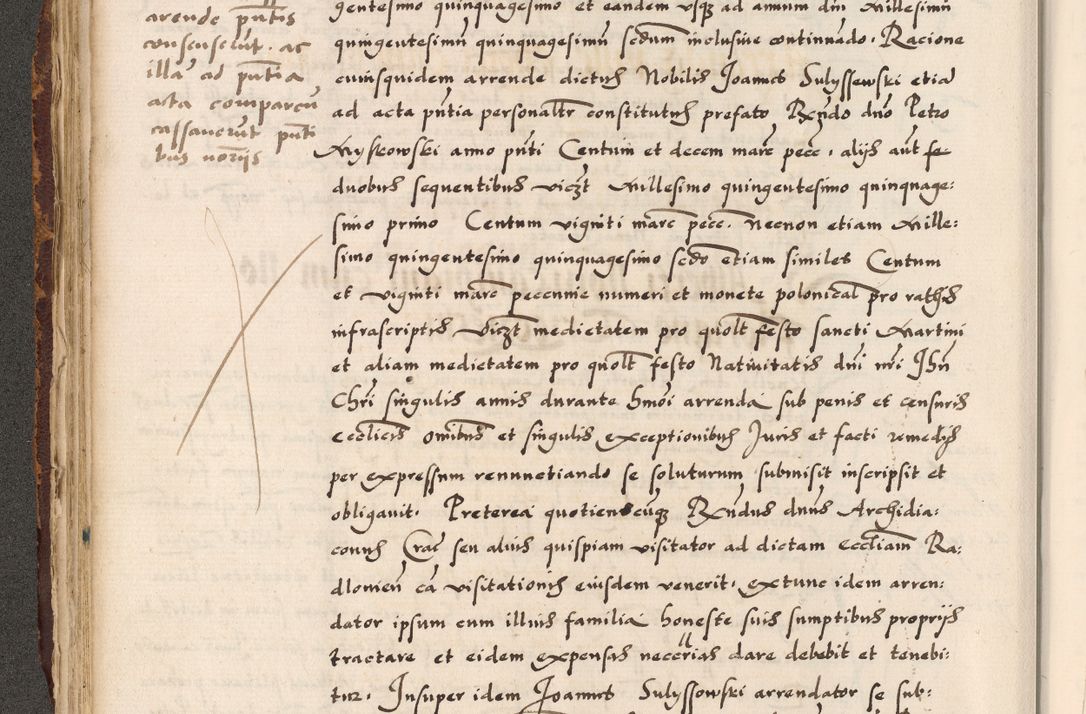 arende pũtis
consenserũt. ac
illã ad pũtia
acta comparẽn
cassaverũt pũti
bus norijs
gentesimo quinquagesimo et eandem vsq3 ad annum dni Millesimũ
quingentesimũ quinquagesimũ scdum inclusiue continuado. Racione
cuiusquidem arrende dictus Nobilis Joannes Sulyssewski etiã
ad acta pũtia personalr constitutus prefato Rxndo dno Petro
Myskowski anno pũti Centum et decem marc pecc. alijs aut
duobus sequentibus vicz Millesimo quingentesimo quinquage:
simo primo Centum viginti marc pecc. necnon etiam Mille:
simo quingentesimo quinquagesimo scdo etiam similes Centum
et viginti marc peccunie numeri et monete polonical pro rathis
infrascriptis vicz medietatem pro quolt festo sancti Martini
et aliam medietatem pro quolt festo Natiuitatis dni nri Jhu
Chri singulis annis durante hmoi arrenda sub penis et censuris
ecclicis omibus et singulis exceptionibus Juris et facti remedijs
per expressum renunctiando se soluturum submisit inscripsit et
obligauit. Preterea quotienscuq3 Rxndus dnus Archidia:
conus Crac seu alius quispiam visitator ad dictam eccliam Ra:
dlouien cã visitationis eiusdem venerit. extunc idem arren:
dator ipsum cum illius familia honeste suis sumptibus proprijs
tractare et eidem expensas neccrias dare debebit et tenebi:
tur. Insuper idem Joannes Sulyssowski arrendator se sub: